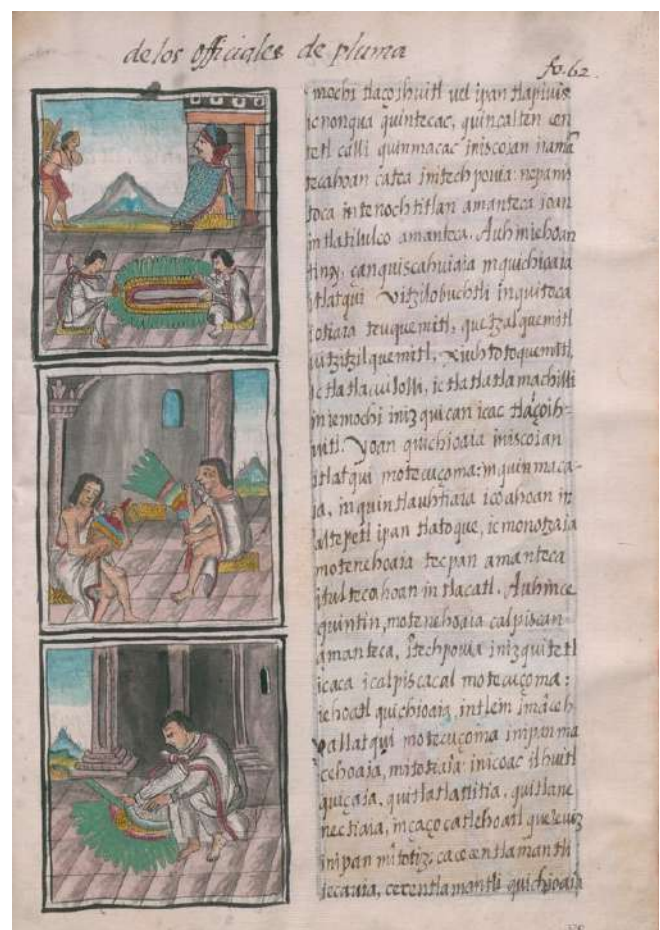 de los officiales de pluma
fo. 62.
mochi tlaçoihuitl vel ipan tlapiuix
ic nonqua quintecac, quincalten cen
tetl calli quinmacac iniscoian inamã
tecahoan catca imitech povia: nepanis
toca in tenochtitlan amanteca ioan
in tlatilulco amanteca. Auh iniehoan
tin y, çan quiscahuiaia in quichioaia
itlatqui vitzilobuchtli in quitoca
iotiaia teuquemitl, quetzalquemitl
uitzitzilquemitl, xiuhtotoquemitl,
ic tlatlacuilolli, ic tlatlatlamachilli
in ie mochi iniz quican icac tlaçoih-
uitl. Yoan quichioaia iniscoian
itlatqui motecuçoma: in quinmaca-
ia, in quintlauhtiaia icoahoan in
altepetl ipan tlatoque, ic monotzaia
motenehoaia tecpan amanteca
itultecahoan in tlacatl. Auh in ce
quintin, motenehoaia calpiscan
amanteca, itech povia inizquitetl
icaca icalpiscacal motecuçoma:
iehoatl quichioaia, intlein imaceh
pallatqui motecuçoma inipan ma
cehoaia, mitotiaia: inicoac ilhuitl
quiçaia, quitlatlattitia, quitlane
nectiaia, in caço catlehoatl queleuiz
inipan mitotiz: ca cecentlamantli
iecauia, cecentlamantli quichioaia